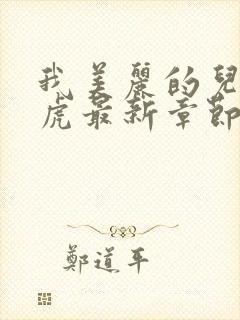 我美麗的兒
虎最新章節
鄭道平